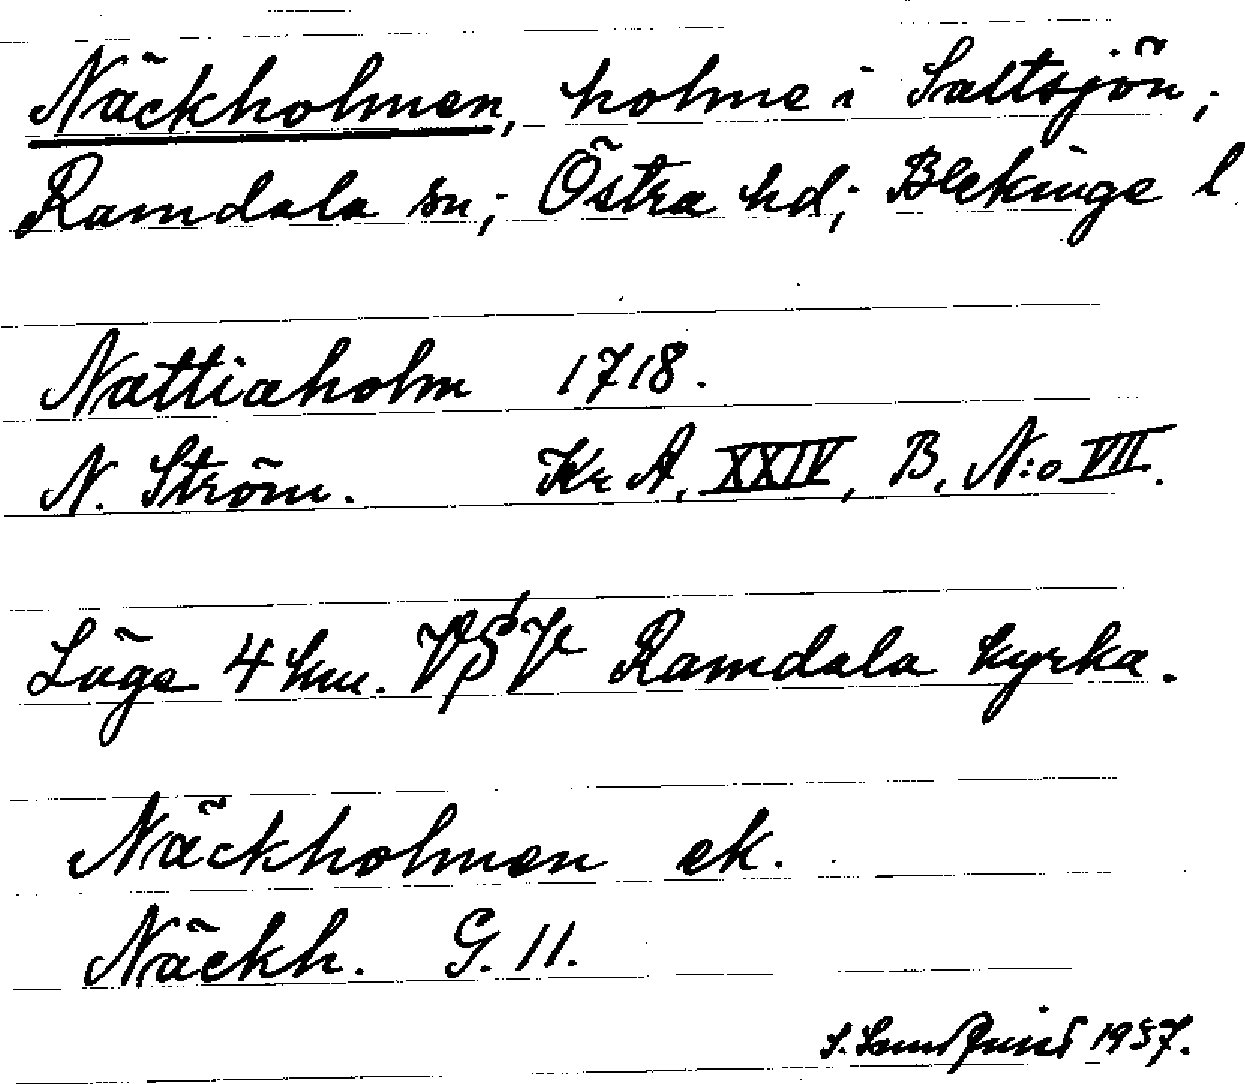 Näckholmen, holme i Saltsjön;
Ramdala sn; Östra hd; Blekinge l
Nattiaholm 1718.
N. Ström. Kr A, XXIV, B, N:o VII.
Läge 4 km. VSV Ramdala kyrka.
Näckholmen ek.
Näckh. G. 11.
S. Sundquist 1937.